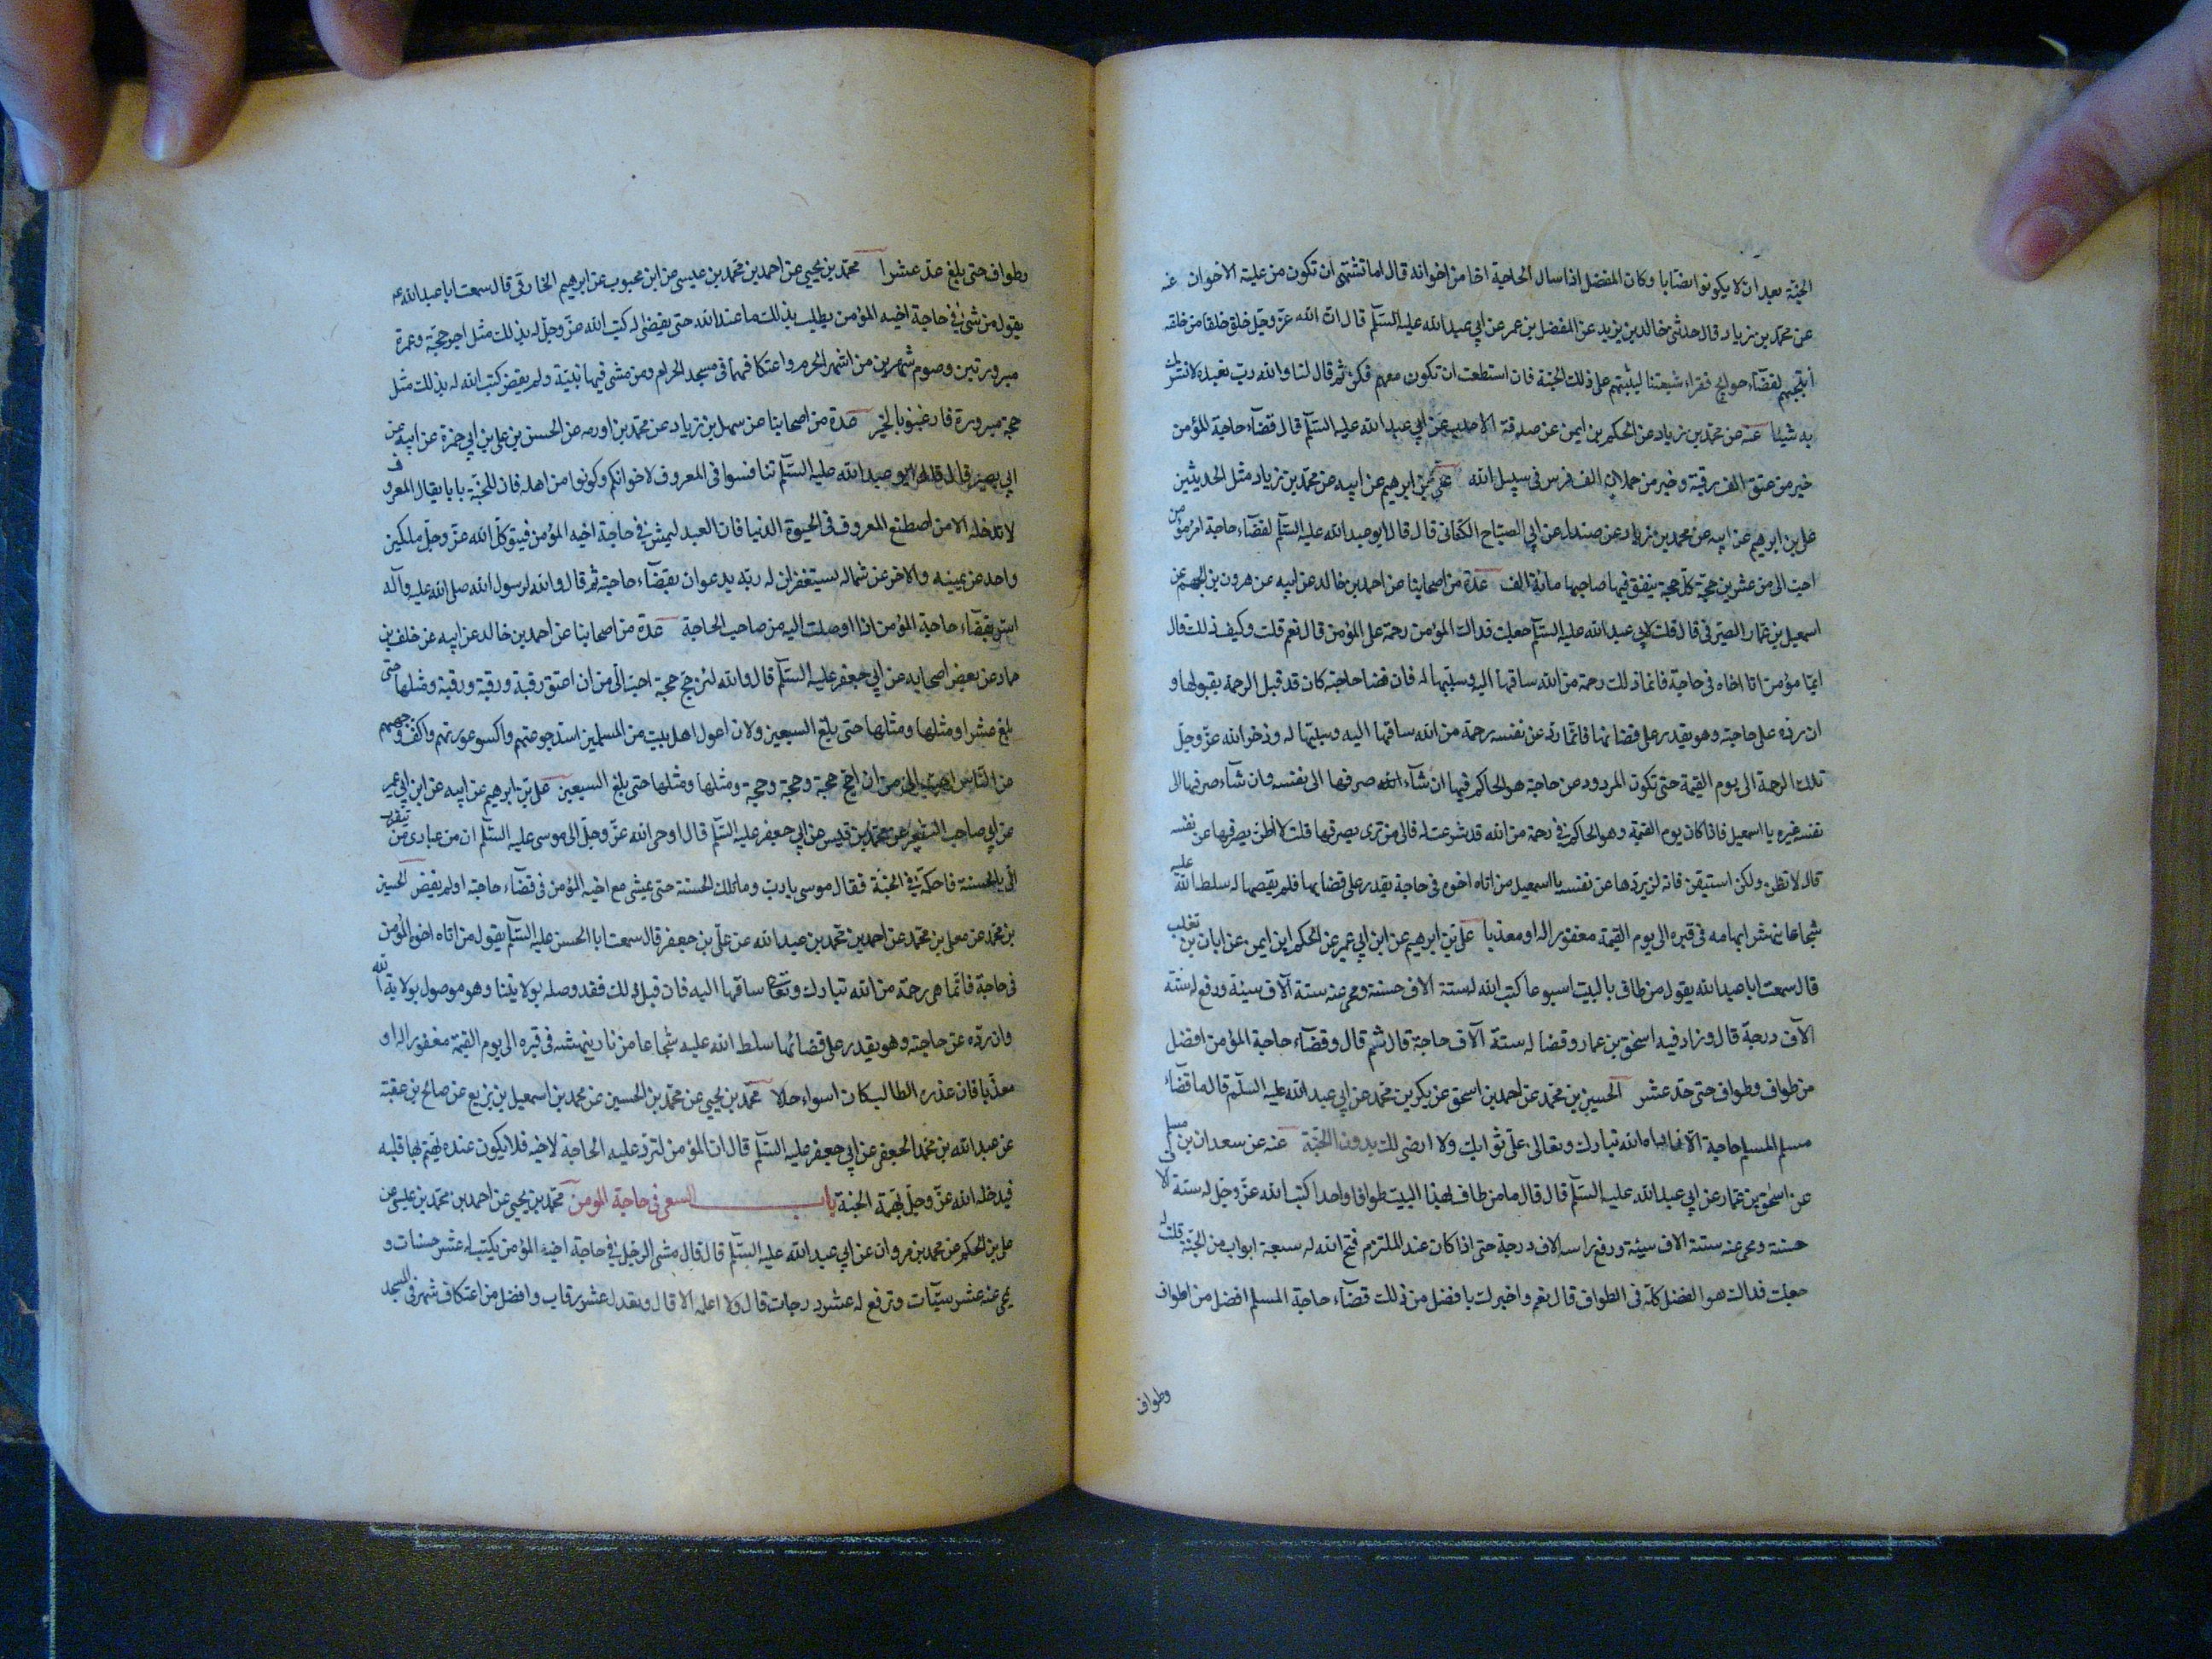 الجنة بعد ان لا يكونوا نصابا وكان المفضل اذا سال الحاجة اخا من اخوانه قال اما تشتهى ان تكون من علية الاخوان عنه
عن محمد بن زياد قال حدثنى خالد بن يزيد عن المفضل بن عمر عن ابي عبد الله عليه السلم قال ان الله عز وجل خلق خلقا من خلقه
انتجبهم لقضاء حوايج فقراء شيعتنا ليثبتهم على ذلك الجنة فان استطعت ان تكون منهم فكن ثم قال لنا والله رب نعبده لا نشرك
به شيئا عنه عن محمد بن زياد عن الحكم بن ايمن عن صدقة الاحدب عن ابي عبد الله عليه السلم قال قضاء حاجة المؤمن
خير من عتق الف رقبة وخير من حملان الف فرس فى سبيل الله على بن ابرهيم عن ابيه عن محمد بن زياد مثل الحديثين
على بن ابرهيم عن ابيه عن محمد بن زياد عن صندل عن ابي الصباح الكنانى قال قال ابو عبد الله عليه السلم لقضاء حاجة امرؤ مؤمن
احب الى من عشرين حجة كل حجة ينفق فيها صاحبها مائة الف عدة من اصحابنا عن احمد بن خالد عن ابيه عن هرون بن الجهم عن
اسمعيل بن عمار الصيرفى قال قلت لابي عبد الله عليه السلم جعلت فداك المؤمن رحمة على المؤمن قال نعم قلت وكيف ذلك قال
ايما مؤمن اتا اخاه فى حاجة فانما ذلك رحمة من الله ساقها اليه وسببها له فان قضا حاجته كان قد قبل الرحمة بقبولها و
ان رده على حاجته وهو يقدر على قضائها فانما رد عن نفسه رحمة من الله ساقها اليه وسببها له وذخر الله عز وجل
تلك الرحمة الى يوم القيمة حتى تكون المردود عن حاجته هو الحاكم فيها ان شاء الله صرفها الى نفسه وان شاء صرفها الى
نفسه غيره يا اسمعيل فاذا كان يوم القيمة وهو الحاكم فى رحمة من الله قد شرعت له فالى من ترى يصرفها قلت لا اظن يصرفها عن نفسه
قال لا تظن ولكن استيقن فانه لن يردها عن نفسه يا اسمعيل من اتاه اخوه فى حاجة يقدر على قضايها فلم يقضها له سلط الله عليه
شجاعا ينهش ابهامه فى قبره الى يوم القيمة مغفورا له او معذبا على بن ابرهيم عن ابن ابي عمير عن الحكم ابن ايمن عن ابان بن تغلب
قال سمعت ابا عبد الله يقول من طاف بالبيت اسبوعا كتب الله له ستة الاف حسنة ومحى عنه ستة آلاف سيئة ورفع له ستة
الاف درجة قال وزاد فيه اسحق بن عمار وقضا له ستة آلاف حاجة قال ثم قال وقضاء حاجة المؤمن افضل
من طواف وطواف حتى حد عشر الحسين بن محمد عن احمد بن اسحق عن بكر بن محمد عن ابي عبد الله عليه السلم قال ما قضاء
مسلم المسلم حاجة الا ناداه الله تبارك وتعالى على ثوابك ولا ارضى لك بدون الجنة عنه عن سعدان بن مسلم
عن اسحق بن عمار عن ابي عبد الله عليه السلم قال قال ما من طاف لهذا البيت طوافا واحدا كتب الله عز وجل له ستة الاف
حسنة ومحى عنه ستة الاف سيئة ورفع له ستة الاف درجة حتى اذا كان عند الملتزم فتح الله له سبعة ابواب من الجنة قلت له
جعلت فداك هو الفضل كله فى الطواف قال نعم واخبرك بافضل من ذلك قضاء حاجة المسلم افضل من اطواف
وطواف
بطواف حتى بلغ عد عشرا محمد بن يحيى عن احمد بن محمد بن عيسى عن ابن محبوب عن ابرهيم الخارقى قال سمعت ابا عبد الله عم
يقول من مشى فى حاجة اخيه المؤمن يطلب بذلك ما عند الله حتى يقضى له كتب الله عز وجل له بذلك مثل اجر حجة وعمرة
مبرورتين وصوم شهرين من اشهر الحرم واعتكافهما فى مسجد الحرام ومن مشى فيها بنية ولم يقض كتب الله له بذلك مثل
حجة مبرورة فارغبوا بالخير عدة من اصحابنا عن سهل بن زياد عن محمد بن اورمه عن الحسن بن على بن ابي حمزة عن ابيه عن
ابي بصير قال قال ابو عبد الله عليه السلم تنافسوا فى المعروف لاخوانكم وكونوا من اهله فان للجنة بابا يقال المعروف
لا تدخله الا من اصطنع المعروف فى الحيوة الدنيا فان العبد ليمشى فى حاجة اخيه المؤمن فيتوكل الله عز وجل ملكين
واحد عن يمينه والاخر عن شماله يستغفران له ربه يدعوان بقضاء حاجته ثم قال والله لرسول الله صلى الله عليه وآله
اسر بقضاء حاجة المؤمن اذا اوصلت اليه من صاحب الحاجة عدة من اصحابنا عن احمد بن خالد عن ابيه عن خلف بن
حماد عن بعض اصحابه عن ابي جعفر عليه السلم قال والله لئن حج حجة احب الى من ان اعتق رقبة ورقبة ورقبة ومثلها حتى
بلغ عشرا ومثلها ومثلها حتى بلغ السبعين ولان اعول اهل بيت من المسلمين اسد جوعتهم واكسو عورتهم واكف وجههم
من الناس احب الى من ان احج حجة وحجة وحجة ومثلها ومثلها حتى بلغ السبعين على بن ابرهيم عن ابيه عن ابن ابي عمير
عن ابي صاحب الشعير عن محمد بن قيس عن ابي جعفر عليه السلم قال اوحى الله عز وجل الى موسى عليه السلم ان من عبادى من تتقرب
الى بالحسنة فاحكمه فى الجنة فقال موسى يا رب وما تلك الحسنة حتى عيشى مع اخيه المؤمن فى قضاء حاجته او لم يقض الحسين
بن محمد عن معلى بن محمد عن احمد بن محمد بن عبد الله عن على بن جعفر قال سمعت ابا الحسن عليه السلم يقول من اتاه اخوه المؤمن
فى حاجة فانما هى رحمة من الله تبارك وتعالى ساقها اليه فان قبل ذلك فقد وصله بولايتنا وهو موصول بولاية الله
وان رده عن حاجته وهو يقدر على قضائها سلط الله عليه شجاعا من نار ينهشه فى قبره الى يوم القيمة مغفورا له او
معذبا فان عذره الطالب كان اسواء حالا محمد بن يحيى عن محمد بن الحسين عن محمد بن اسمعيل بن بزيع عن صالح بن عقبة
عن عبد الله بن محمد الجعفى عن ابي جعفر عليه السلم قال ان المؤمن لترد عليه الحاجة لاخيه فلا يكون عنده يهتم بها قلبه
فيدخله الله عز وجل بهمه الجنة باب السعى فى حاجة المومن محمد بن يحيى عن احمد بن محمد بن عيسى عن
على بن الحكم عن محمد بن مروان عن ابي عبد الله عليه السلم قال قال مشى الرجل فى حاجة اخيه المؤمن يكتب له عشر حسنات و
يمحى عنه عشر سيئات وترفع له عشر درجات قال ولا اعلمه الا قال ويعدل عشر رقاب وافضل من اعتكاف شهر فى المسجد